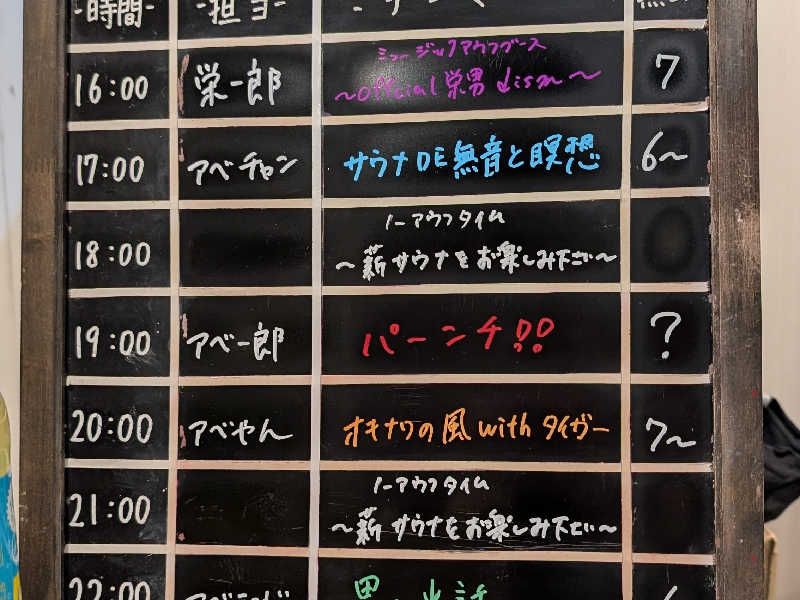 -時間-
-担当-
16:00 栄一郎 ミュージックアウフグース 7
～Official栄男dism～
17:00 アベチャン サウナDE無音と瞑想 6～
18:00 ノーアウフタイム
～薪サウナをお楽しみ下さい～
19:00 アベ一郎 パーンチ!! ?
20:00 アベやん オキナワの風withタイガー 7～
21:00 ノーアウフタイム
～薪サウナをお楽しみ下さい～
22:00